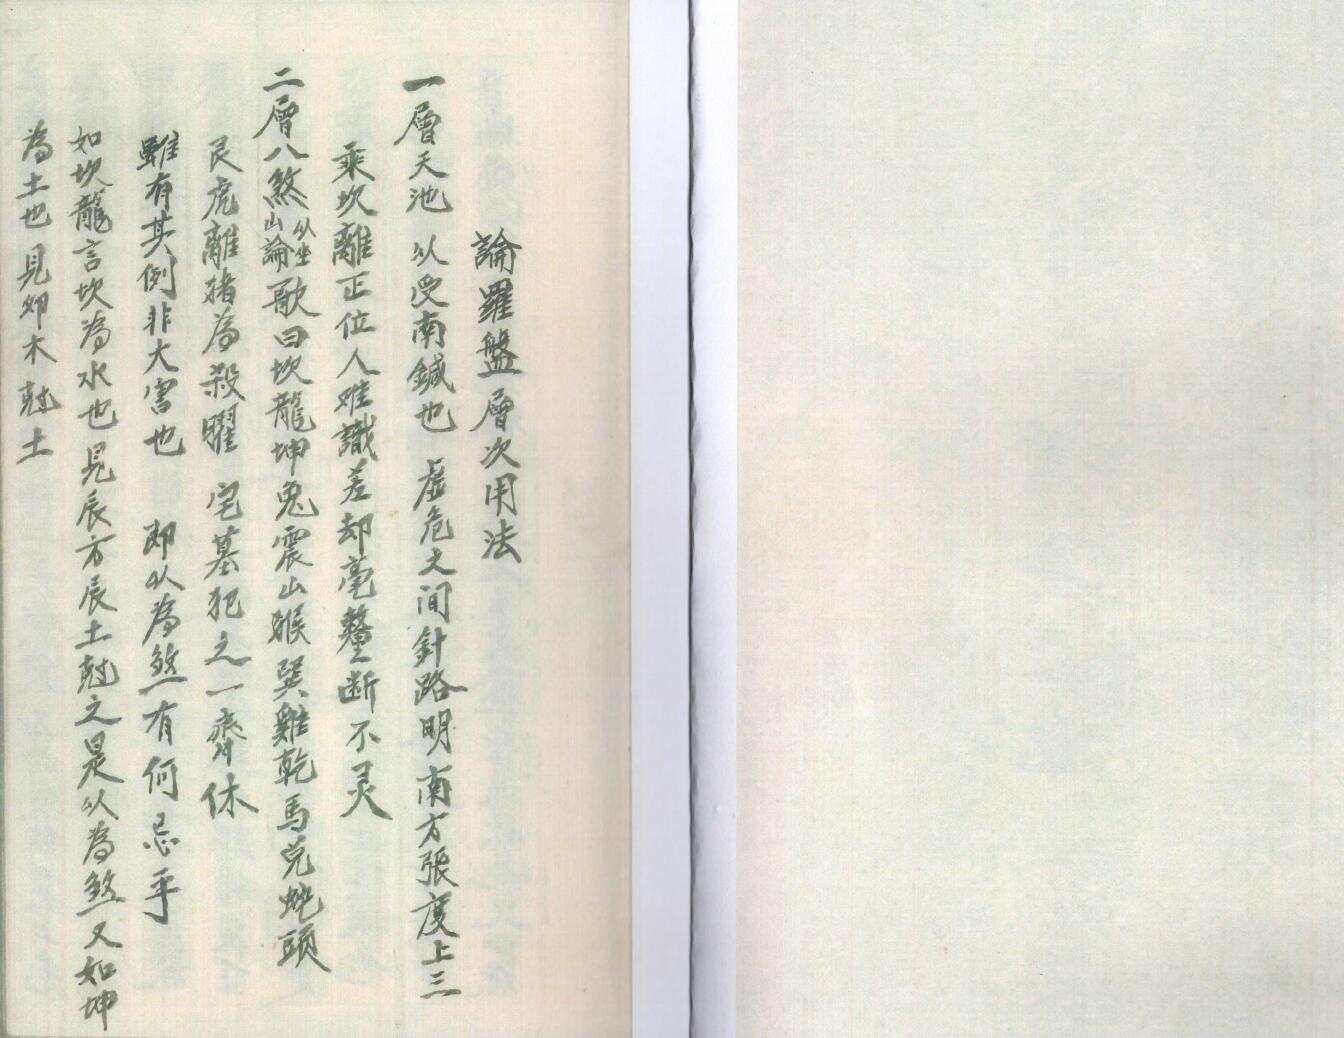 論羅盤層次用法
一層天池 以受南鍼也 虛危之间針路明南方張度上三
乘坎離正位人难識差却毫釐断不灵
二層八煞以坐山論歌曰坎龍坤兔震山猴巽雞乾馬兑蛇頭
艮虎離猪為殺曜 宅墓犯之一齊休
雖有其例非大害也 即以為煞有何忌乎
如坎龍言坎為水也見辰方辰土尅之是以為煞又如坤
為土也見卯木尅土